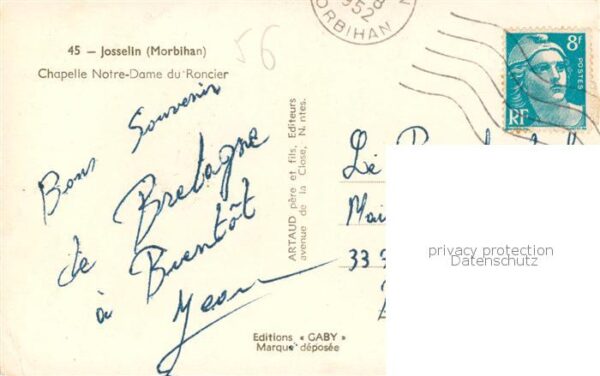 45 — Josselin (Morbihan)
Chapelle Notre-Dame du Roncier
56
1952
MORBIHAN
8F
POSTES
RF
Bons Souvenirs
de Bretagne
à Bientôt
Jean
ARTAUD père et fils, Editeurs
avenue de la Close, Nantes.
33
privacy protection
Datenschutz
Editions « GABY »
Marque déposée